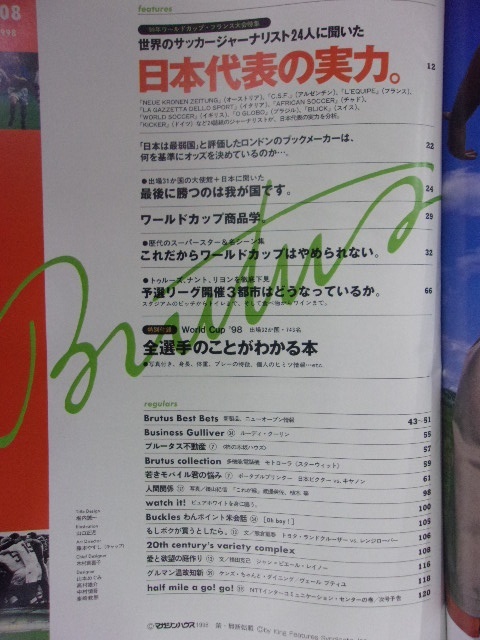 08
1998
features
98年ワールドカップ・フランス大会特集
世界のサッカージャーナリスト24人に聞いた
日本代表の実力。 12
「NEUE KRONEN ZEITUNG」(オーストリア)、「C.S.F.」(アルゼンチン)、「L'EQUIPE」(フランス)、
「LA GAZZETTA DELLO SPORT」(イタリア)、「AFRICAN SOCCER」(チャド)、
「WORLD SOCCER」(イギリス)、「O GLOBO」(ブラジル)、「BLICK」(スイス)、
「KICKER」(ドイツ)など24誌紙のジャーナリストが、日本代表の実力を分析。
「日本は最弱国」と評価したロンドンのブックメーカーは、
何を基準にオッズを決めているのか…。 32
●出場31か国の大使館+日本に聞いた
最後に勝つのは我が国です。 24
ワールドカップ商品学。 29
●歴代のスーパースター&名シーン集
これだからワールドカップはやめられない。 32
●トゥルーズ、ナント、リヨンを徹底下見
予選リーグ開催3都市はどうなっているか。 66
特別付録 World Cup '98 出場32か国
全選手のことがわかる本
●写真付き、身長、体重、プレーの特徴、個人のヒミツ情報…etc.
Brutus
regulars
Brutus Best Bets 新製品、ニューオープン情報 43〜51
Business Gulliver ルーディ・ターリン 55
ブルータス不動産 57
Brutus collection 多機能電話機 モトローラ(スターウィット) 59
若きモバイル君の悩み ポータブルプリンター 日本ビクター vs. キヤノン 61
人間関係 98
watch it! ピュアホワイトを身に纏う。 100
Buckles わんポイント米会話 [Oh boy!] 105
もしボクが買うとしたら。 トヨタ・ランドクルーザー vs. レンジローバー 106
20th century's variety complex 108
愛と欲望の庭作り ジャン・ピエール・レイノー 116
グルマン温故知新 118
half mile a go! go! NTTインターコミュニケーション・センターの巻/次号予告 120
Title Design
Illustration
Art Director
Chief Designer
Designer
©マガジンハウス 1998 禁・無断転載 ©by King Features